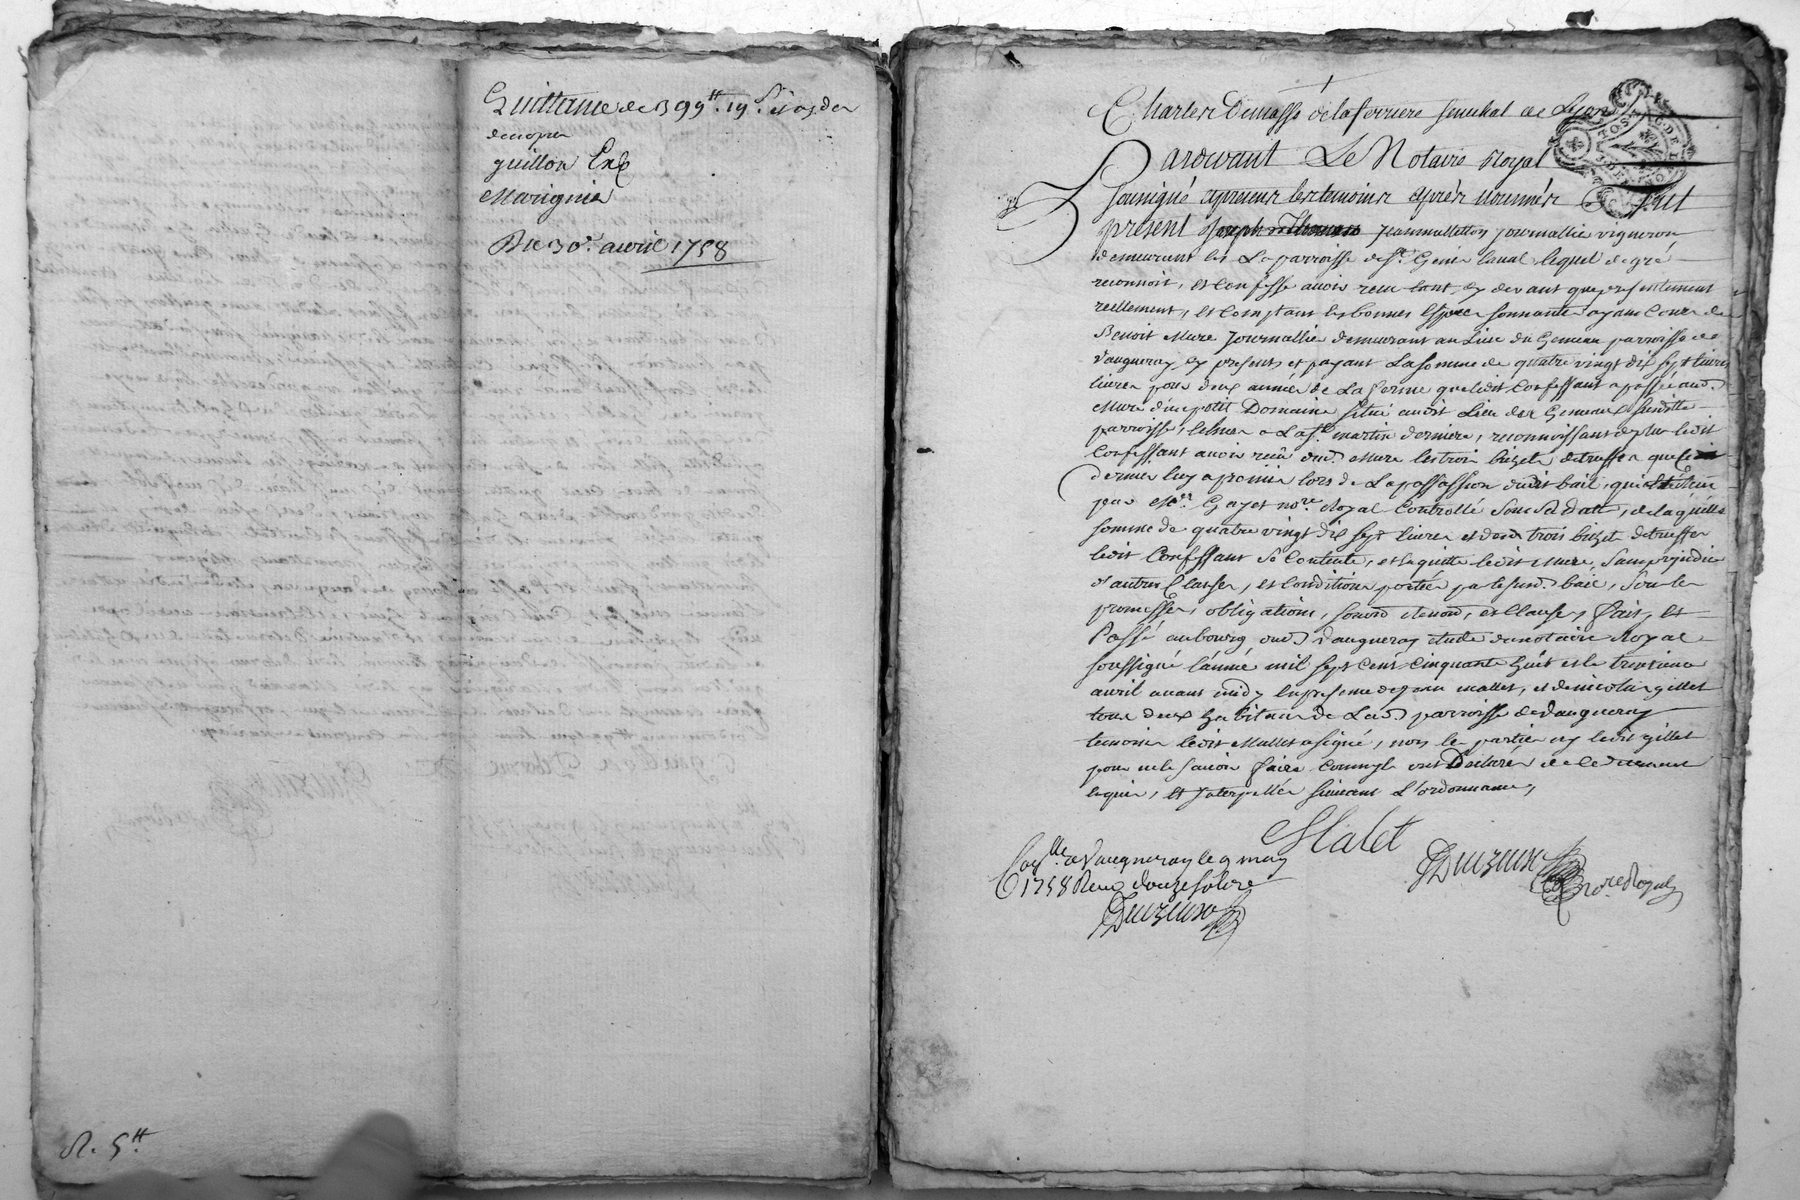 Quittance de 399ᵗᵗ. 19ˢ.
guillon
Marignié
Du 30ᵉ. avril 1758
R. 5ᵗᵗ.
Charles Demasso de la ferriere senechal de Lyon
Pardevant Le Notaire Royal
soussigné et presens les temoins après nommés Fut
present Jean mulletton journallié vigneron
demeurant en La parroisse de Sᵗ. Genis laval lequel de gré
reconnoit, et Confesse avoir receu tant cy devant que presentement
reellement, et Comptant en bonnes Especes sonnantes ayans Cours de
Benoit Mure Journallié demeurant au Lieu du Gemeau parroisse de
Vaugneray cy present et payant La somme de quatre vingt dix sept livres
livres pour deux années de La ferme que ledit Confessant a passé aud.
Mure d'un petit Domaine situé audit Lieu des Gemeaux susditte
parroisse, echues a La Sᵗ. martin derniere, reconnoissant de plus ledit
Confessant avoir receu dud. Mure les trois bichets de truffes que ce
dernier luy a promis lors de La passassion dudit bail, 
par Mᵉ. Gayet noʳᵉ. Royal Controllé sous sa datte, de laquelle
somme de quatre vingt dix sept livres et desd. trois bichets de truffes
ledit Confessant se Contente, et en quitte ledit Mure, sans prejudice
d'autres Clauses, et Conditions portées par le susd. bail, sous les
promesses, obligations, et Clauses, fait, et
Passé au bourg dud. Vaugneray etude du notaire Royal
soussigné l'année mil sept cent cinquante huit et le trentieme
avril avant midy en presence de jean mallet, et de nicolas gillet
tous deux habitans de Lad. parroisse de Vaugneray
temoins ledit Mallet a signé, non les parties ny ledit gillet
pour ne le savoir faire comme ils ont Declaré de ce duement
enquis, et Interpellés suivant L'ordonnance,
Malet
Duizeux noʳᵉ Royal
Conᵗˡˡᵉ. a Vaugneray le 9 may
1758 Reçu douze sols
Duizeux